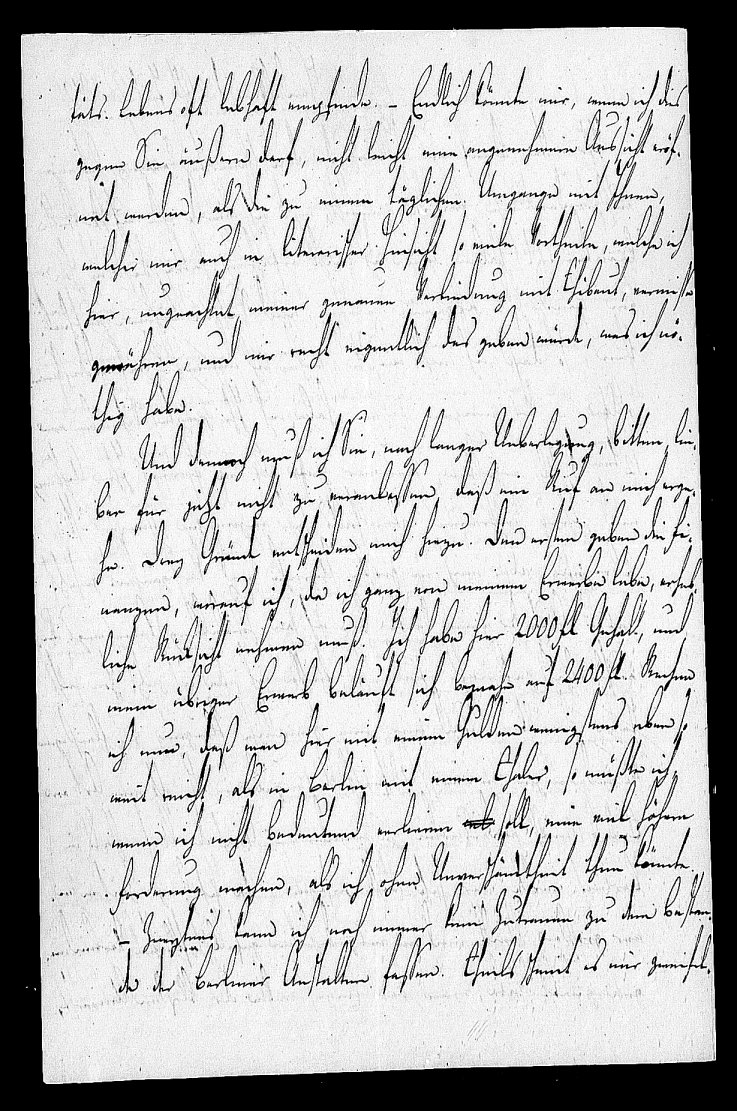 täts. Lebens oft lebhaft empfinde. – Endlich könnte mir, wenn ich dies
gegen Sie äußern darf, nicht leicht eine angenehmere Aussicht eröf-
net werden, als die zu einem täglichen Umgange mit Ihnen,
welcher mir auch in literarischer Hinsicht so viele Vortheile, welche ich
hier, ungeachtet meiner genauen Verbindung mit Thibaut, vermisse
gewähren, und mir recht eigentlich das geben würde, was ich nö-
thig habe.
Und dennoch muß ich Sie, nach langer Ueberlegung, bitten, lie-
ber für jetzt nicht zu veranlassen, daß ein Ruf an mich erge-
he. Drey Gründe entscheiden mich hiezu. Den ersten geben die Fi-
nanzen, worauf ich, da ich ganz von meinem Erwerbe lebe, erheb-
liche Rücksicht nehmen muß. Ich habe hier 2000 fl Gehalt, und
mein übriger Erwerb beläuft sich beynahe auf 2400 fl. Rechne
ich nun, daß man hier mit einem Gulden wenigstens eben so
weit reicht, als in Berlin mit einem Thaler, so müßte ich,
wenn ich nicht bedeutend verlieren soll, eine viel höhere
Forderung machen, als ich ohne Unverschämtheit thun könnte.
– Zweytens kann ich noch immer kein Zutrauen zu dem Bestan-
de der Berliner Anstalten fassen. Theils scheint es mir zweifel-